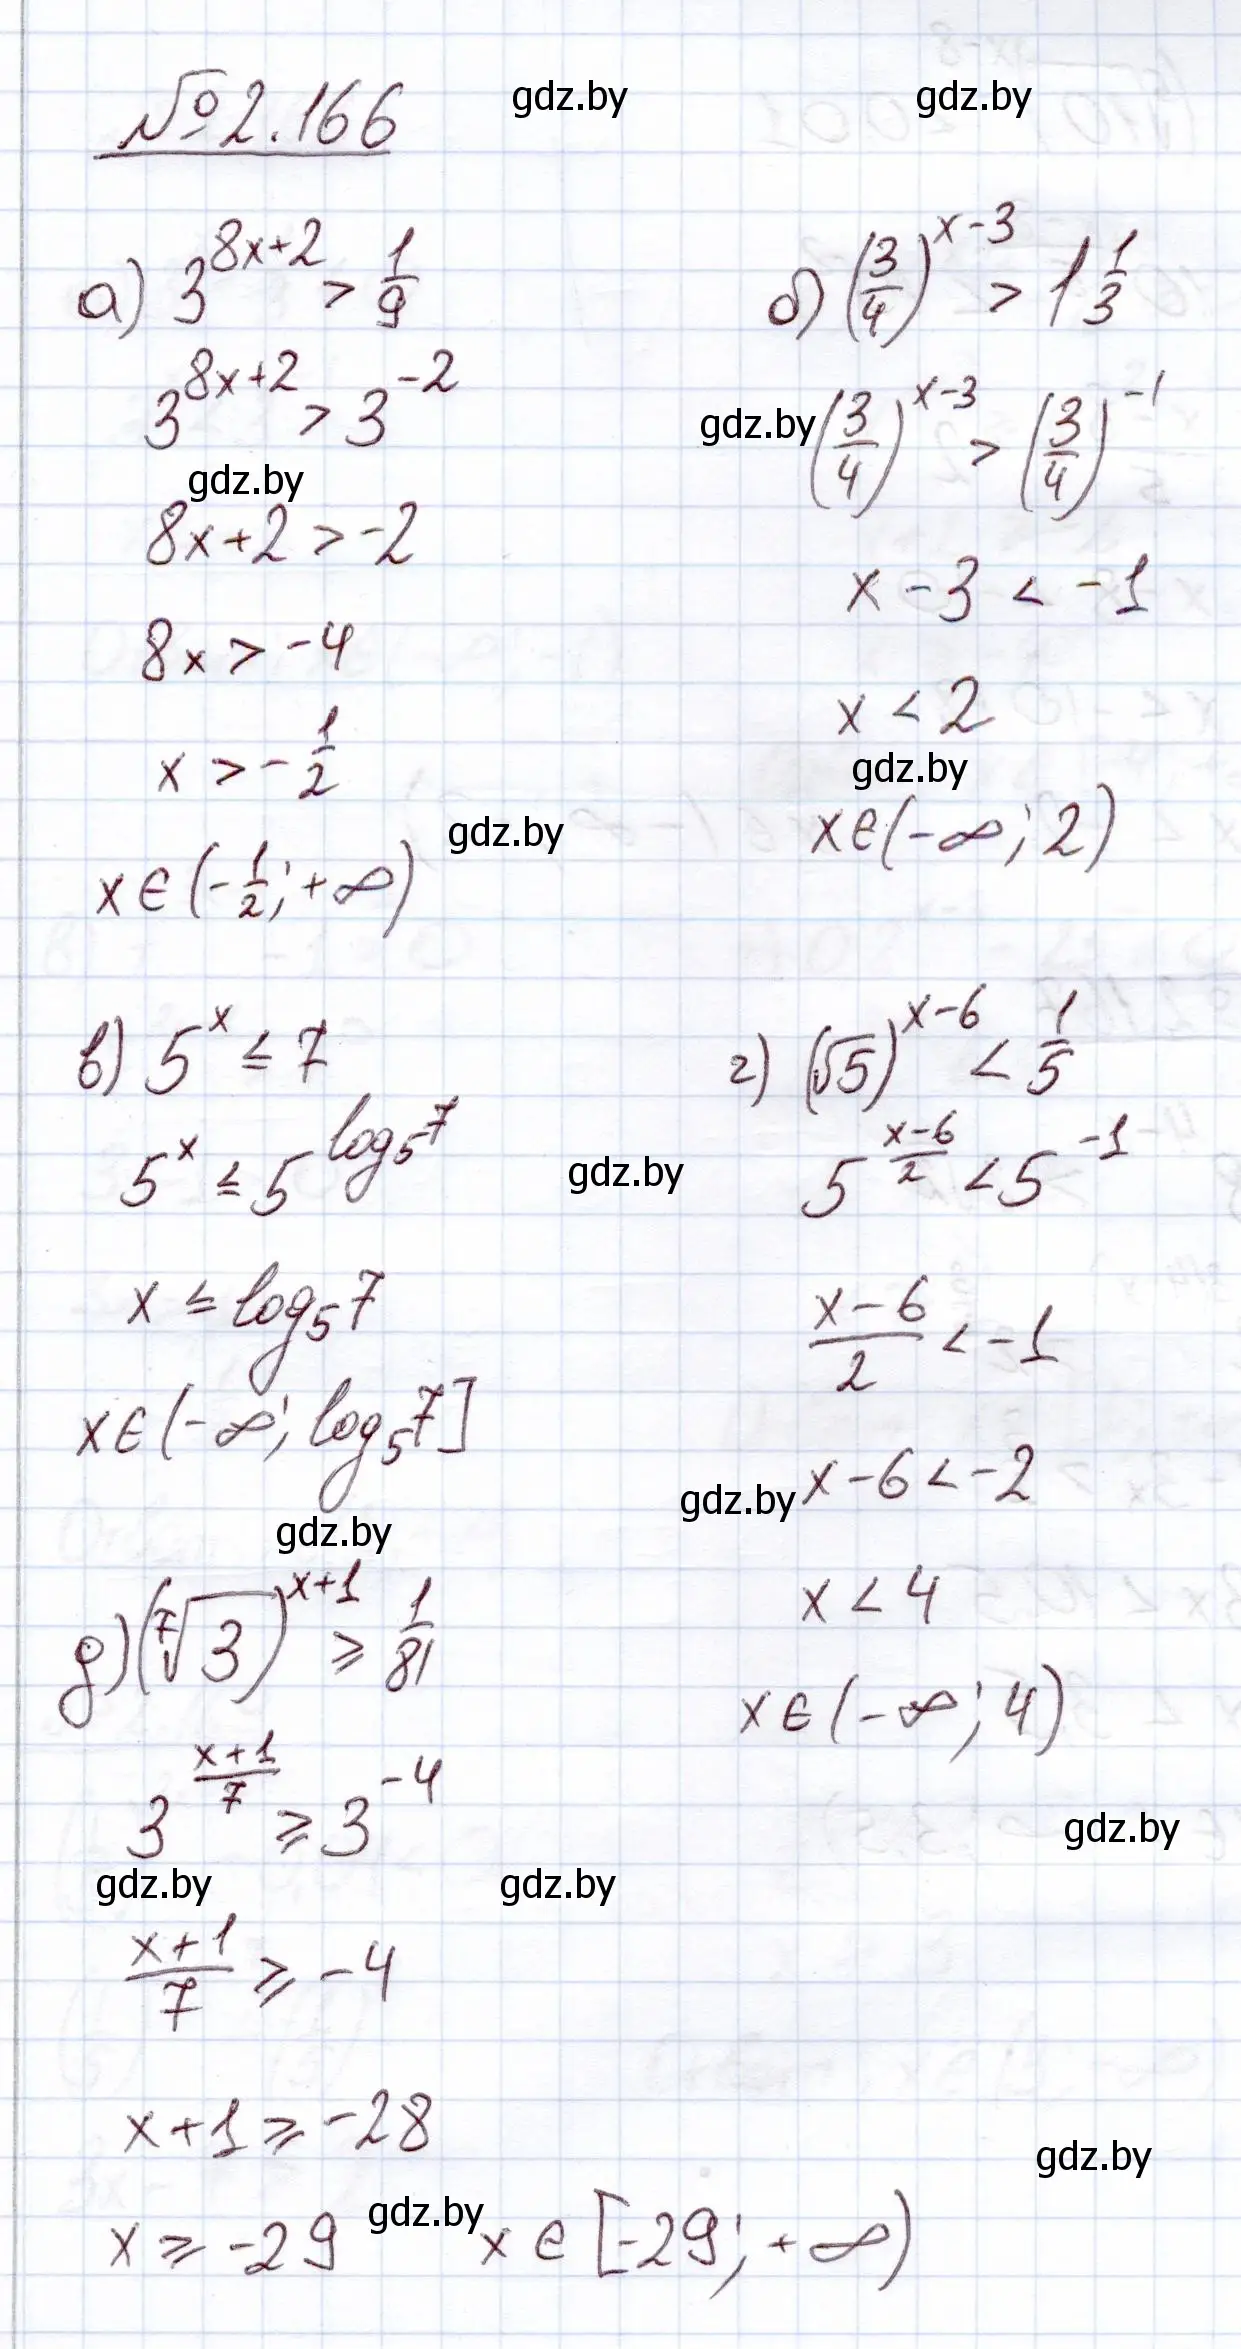 №2.166
gdz.by gdz.by
а) 3^(8x+2) > 1/9
3^(8x+2) > 3^(-2)
gdz.by
8x+2 > -2
8x > -4
x > -1/2
gdz.by
x ∈ (-1/2; +∞)
б) (3/4)^(x-3) > 1 1/3
gdz.by
(3/4)^(x-3) > (3/4)^(-1)
x - 3 < -1
x < 2
gdz.by
x ∈ (-∞; 2)
в) 5^x ≤ 7
5^x ≤ 5^(log₅7)
gdz.by
x ≤ log₅7
x ∈ (-∞; log₅7]
gdz.by
г) (√5)^(x-6) < 1/5
5^((x-6)/2) < 5^(-1)
(x-6)/2 < -1
gdz.by
x-6 < -2
x < 4
x ∈ (-∞; 4)
gdz.by
д) (⁷√3)^(x+1) ≥ 1/81
3^((x+1)/7) ≥ 3^(-4)
gdz.by gdz.by
(x+1)/7 ≥ -4
x+1 ≥ -28
gdz.by
gdz.by
x ≥ -29 x ∈ [-29; +∞)